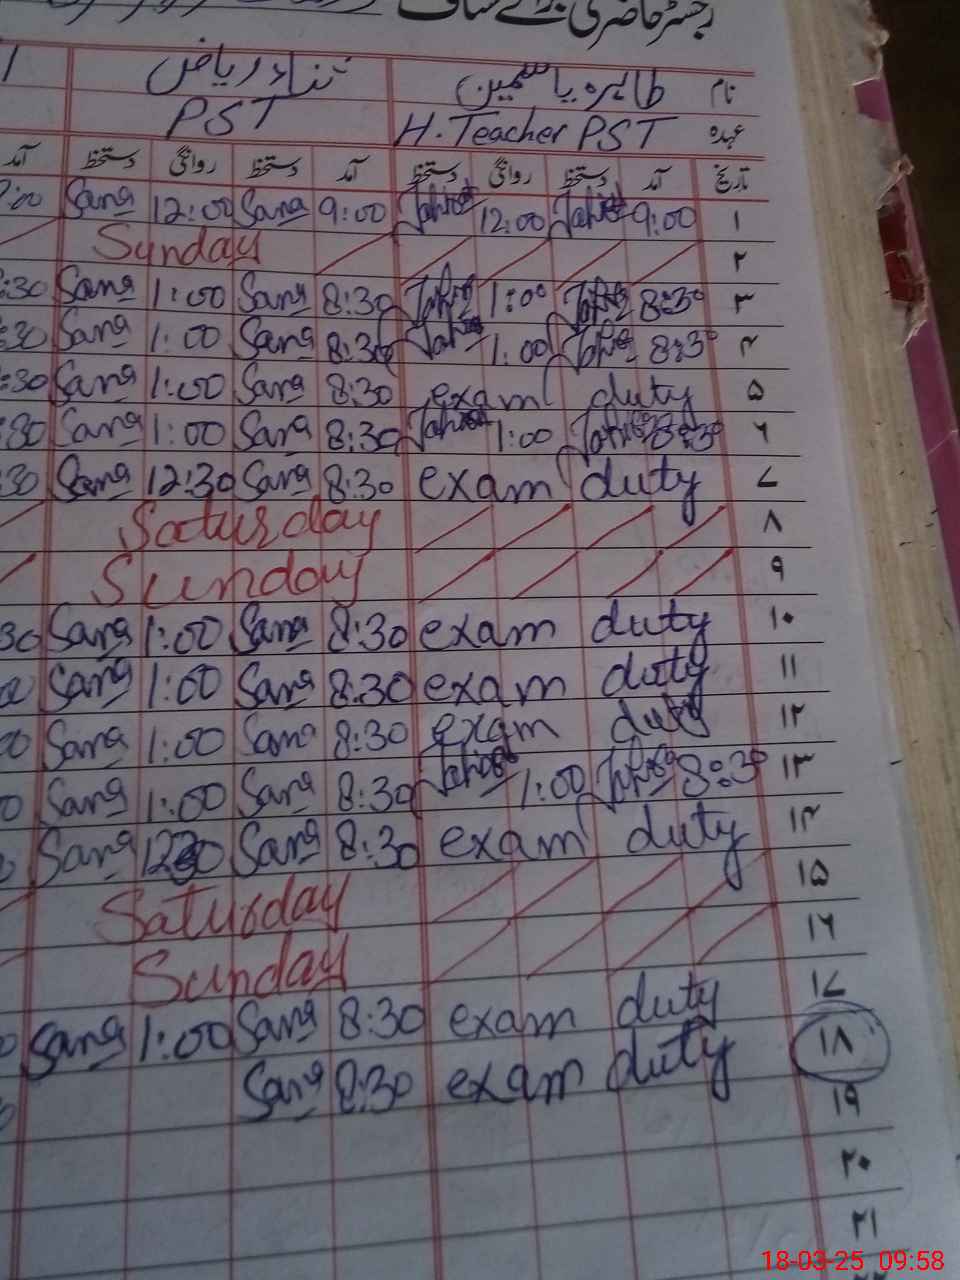 رجسٹر حاضری برائے سٹاف
نام طاہرہ یاسمین ثناء ریاض
عہدہ H. Teacher PST PST
تاریخ آمد دستخط روانگی دستخط آمد دستخط روانگی دستخط آمد
۱ 9:00 Tahira 12:00 Tahira 9:00 Sana 12:00 Sana
۲ Sunday
۳ 8:30 Tahira 1:00 Tahira 8:30 Sana 1:00 Sana :30
۴ 8:30 Tahira 1:00 Tahira 8:30 Sana 1:00 Sana :30
۵ exam duty 8:30 Sana 1:00 Sana :30
۶ 8:30 Tahira 1:00 Tahira 8:30 Sana 1:00 Sana :30
۷ exam duty 8:30 Sana 12:30 Sana :30
۸ Saturday
۹ Sunday
۱۰ exam duty 8:30 Sana 1:00 Sana 30
۱۱ exam duty 8:30 Sana 1:00 Sana
۱۲ exam duty 8:30 Sana 1:00 Sana
۱۳ 8:30 Tahira 1:00 Tahira 8:30 Sana 1:00 Sana
۱۴ exam duty 8:30 Sana 1230 Sana
۱۵ Saturday
۱۶ Sunday
۱۷ exam duty 8:30 Sana 1:00 Sana
۱۸ exam duty 8:30 Sana
۱۹
۲۰
۲۱
18-03-25 09:58